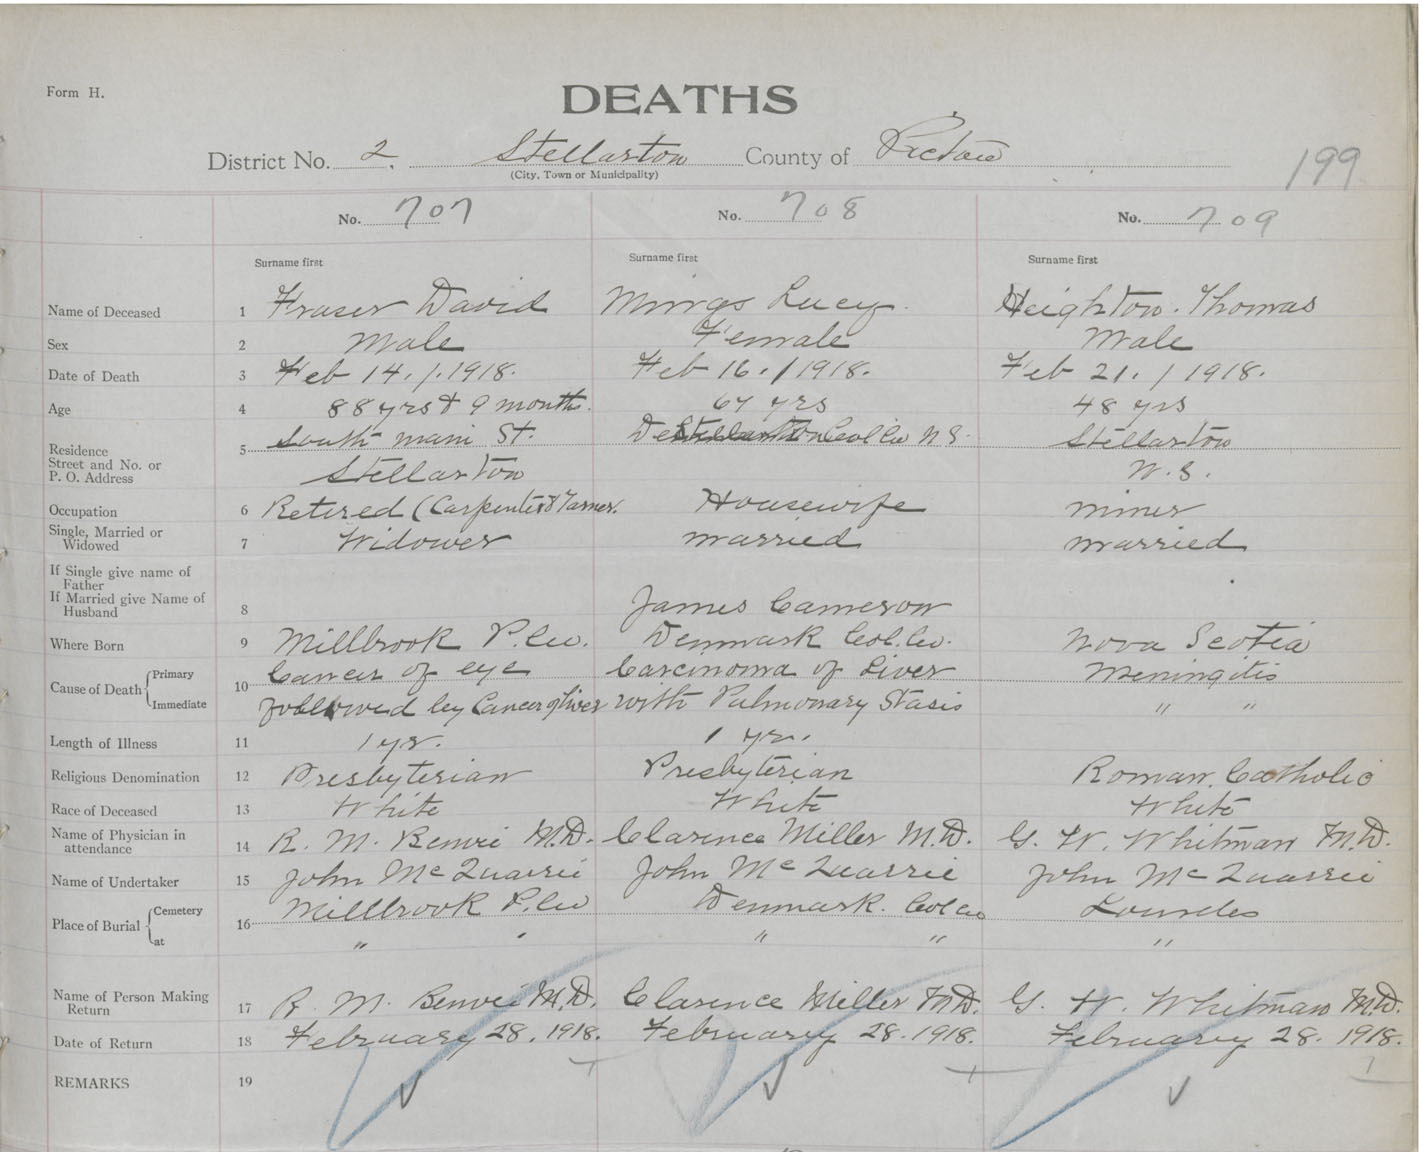 Form H.
DEATHS
District No. 2. Stellarton County of Pictou
(City, Town or Municipality)
199
No. 707 No. 708 No. 709
Surname first Surname first Surname first
Name of Deceased 1 Fraser David Mings Lucy. Heighton. Thomas
Sex 2 Male Female Male
Date of Death 3 Feb 14./.1918. Feb 16./1918. Feb 21./1918.
Age 4 88 yrs & 9 months. 67 yrs 48 yrs
Residence
Street and No. or
P. O. Address
5 South main St. Col Co N S. Stellarton
Stellarton N.S.
Occupation 6 Retired (Carpenter & Farmer. Housewife miner
Single, Married or
Widowed
7 Widower married married
If Single give name of
Father
If Married give Name of
Husband
8 James Cameron
Where Born 9 Millbrook P. Co. Denmark Col. Co. Nova Scotia
Cause of Death Primary 10 Cancer of eye Carcinoma of Liver Meningitis
Immediate followed by Cancer of liver with Pulmonary Stasis " "
Length of Illness 11 1 yr. 1 yr.
Religious Denomination 12 Presbyterian Presbyterian Roman. Catholic
Race of Deceased 13 White White White
Name of Physician in
attendance
14 R. M. Benvie M.D. Clarence Miller M.D. G. W. Whitman M.D.
Name of Undertaker 15 John McQuarrie John McQuarrie John McQuarrie
Place of Burial Cemetery 16 Millbrook P. Co Denmark. Col Co Lourdes
at " " " " "
Name of Person Making
Return
17 R. M. Benvie M.D. Clarence Miller M.D. G. W. Whitman M.D.
Date of Return 18 February 28. 1918. February 28. 1918. February 28. 1918.
REMARKS 19